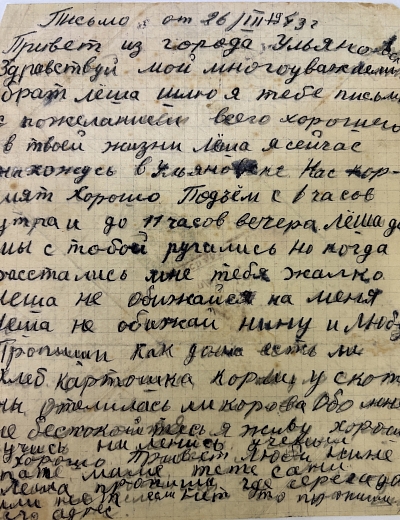 Письмо от 26/III-1943 г
Привет из города Ульяновска
Здравствуй мой многоуважаемый
брат Лёша шлю я тебе письмо
с пожеланием всего хорошего
в твоей жизни Лёша я сейчас
нахожусь в Ульяновске Нас кор-
мят хорошо Подъём с 6 часов
утра и до 11 часов вечера Лёша
мы с тобой ругались но когда
расстались мне тебя жалко
Лёша не обижайся на меня
Лёша не обижай Нину и Любу
Пропиши как дома есть ли
хлеб картошка корм у скоти-
ны отелилась ли корова Обо мне
не беспокойтесь я живу хорошо
учусь
хорошо Привет Любе Нине
папе маме тете Сани
Лёша пропиши где
если нет то пропиши
его адрес